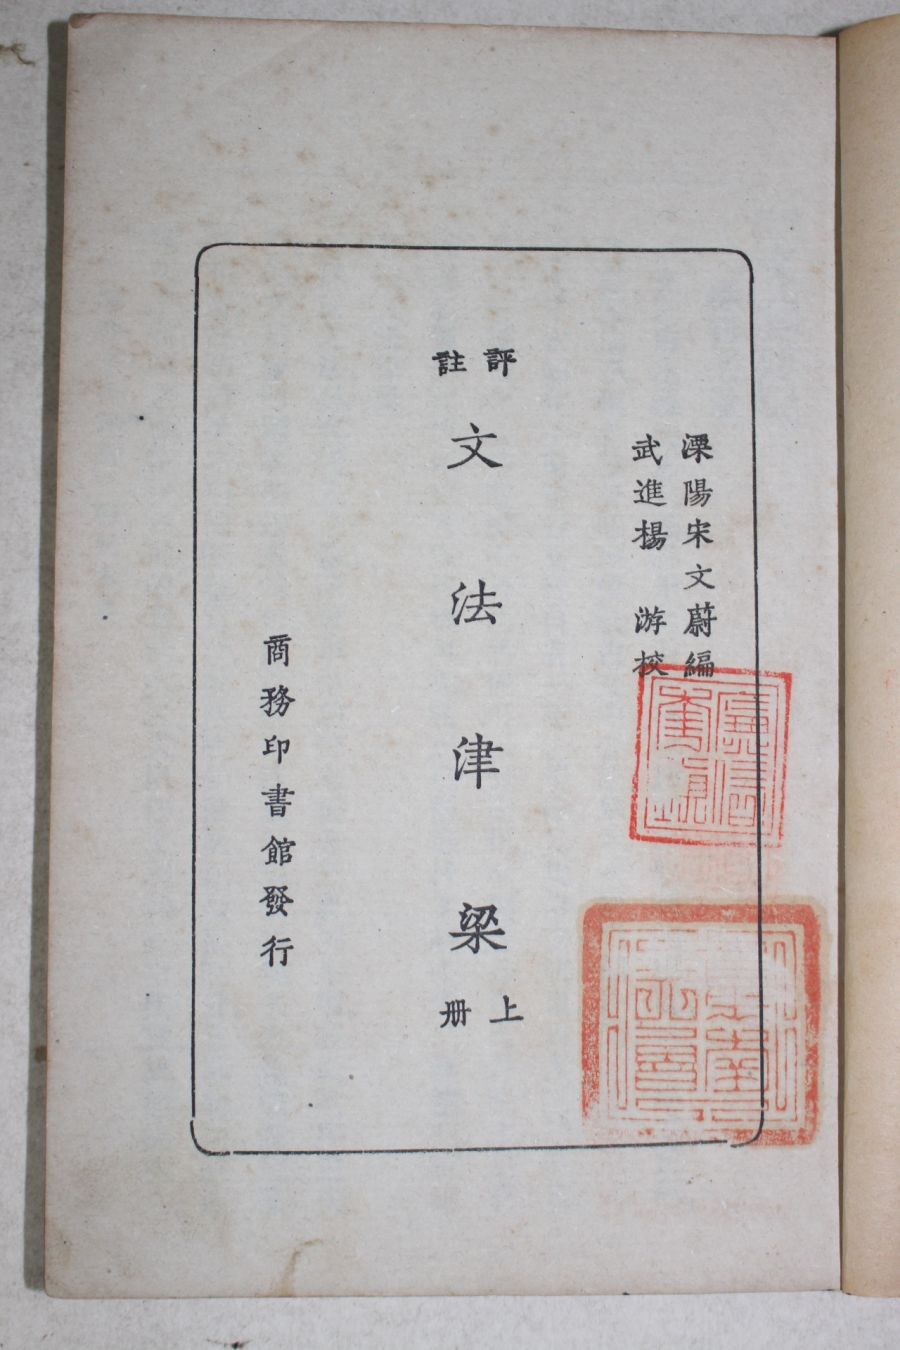 溧陽宋文蔚編
武進楊游校
評註
文法津梁
上册
商務印書館發行